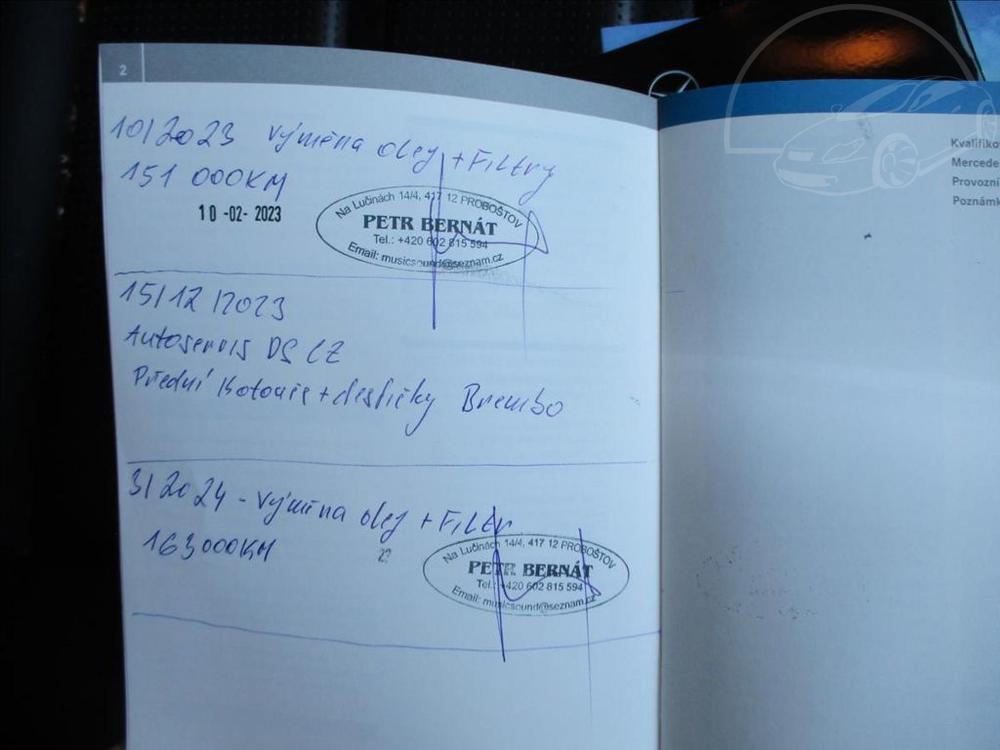 2
10/2023 Výměna olej + Filtry
151 000KM
10-02-2023
Na Lučinách 14/4, 417 12 PROBOŠTOV
PETR BERNÁT
Tel.: +420 602 815 594
Email: musicsound@seznam.cz
15/12/2023
Autoservis DS CZ
Přední kotouče + destičky Brembo
3/2024 - Výměna olej + Filtr
163000KM
Na Lučinách 14/4, 417 12 PROBOŠTOV
PETR BERNÁT
Tel.: +420 602 815 594
Email: musicsound@seznam.cz
Kvalifiko
Mercede
Provozní
Poznámk